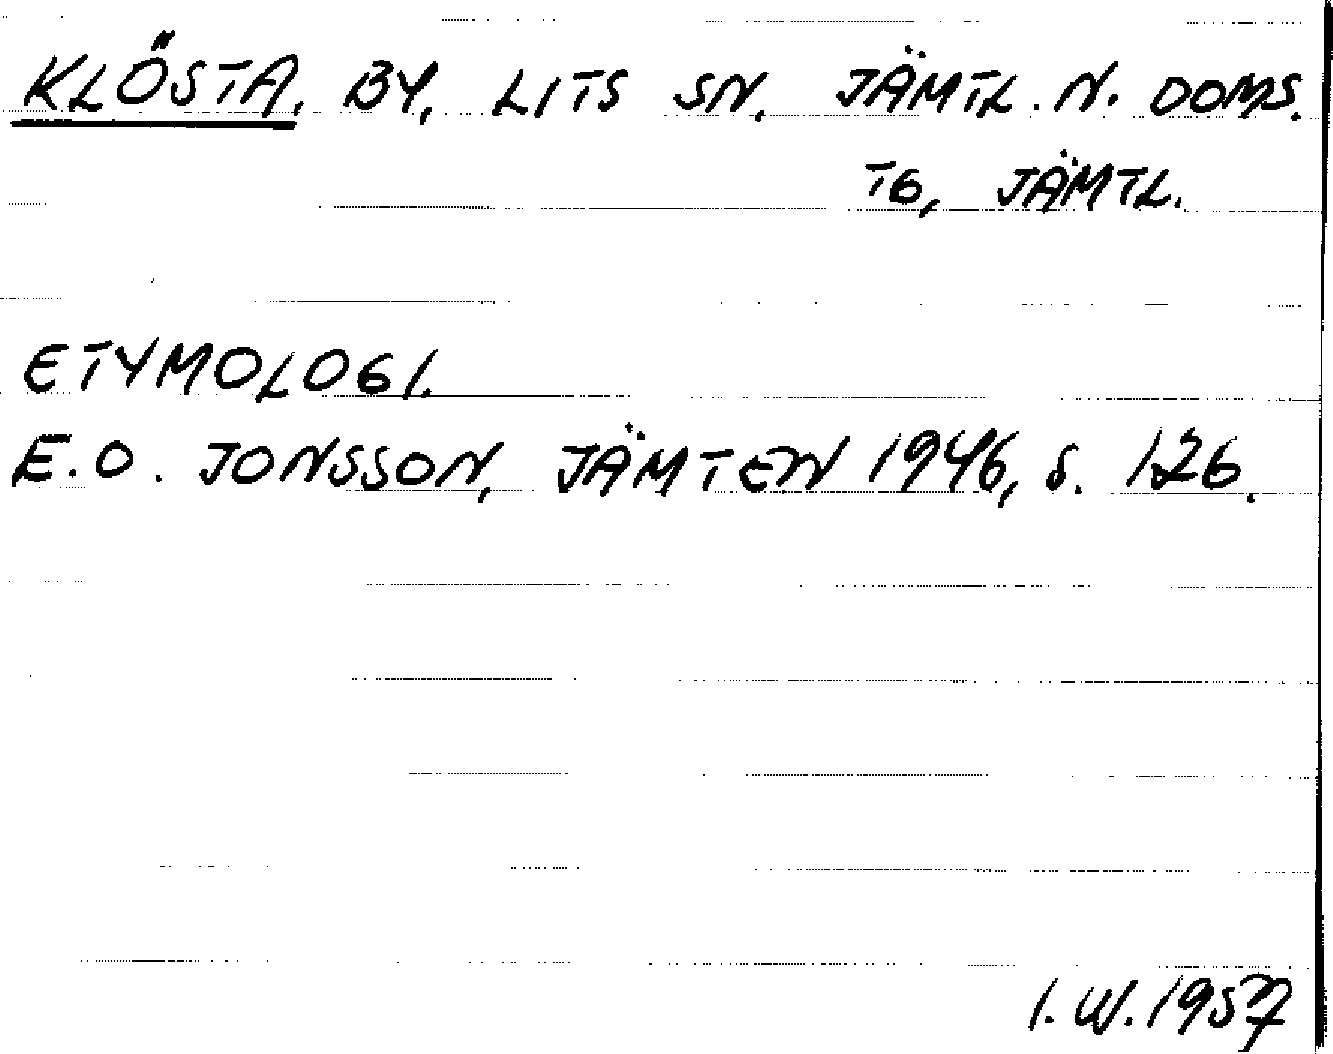 KLÖSTA, BY, LITS SN. JÄMTL. N. DOMS.
TG, JÄMTL.
ETYMOLOGI.
E.O. JONSSON, JÄMTEN 1946, S. 126.
I.W. 1957